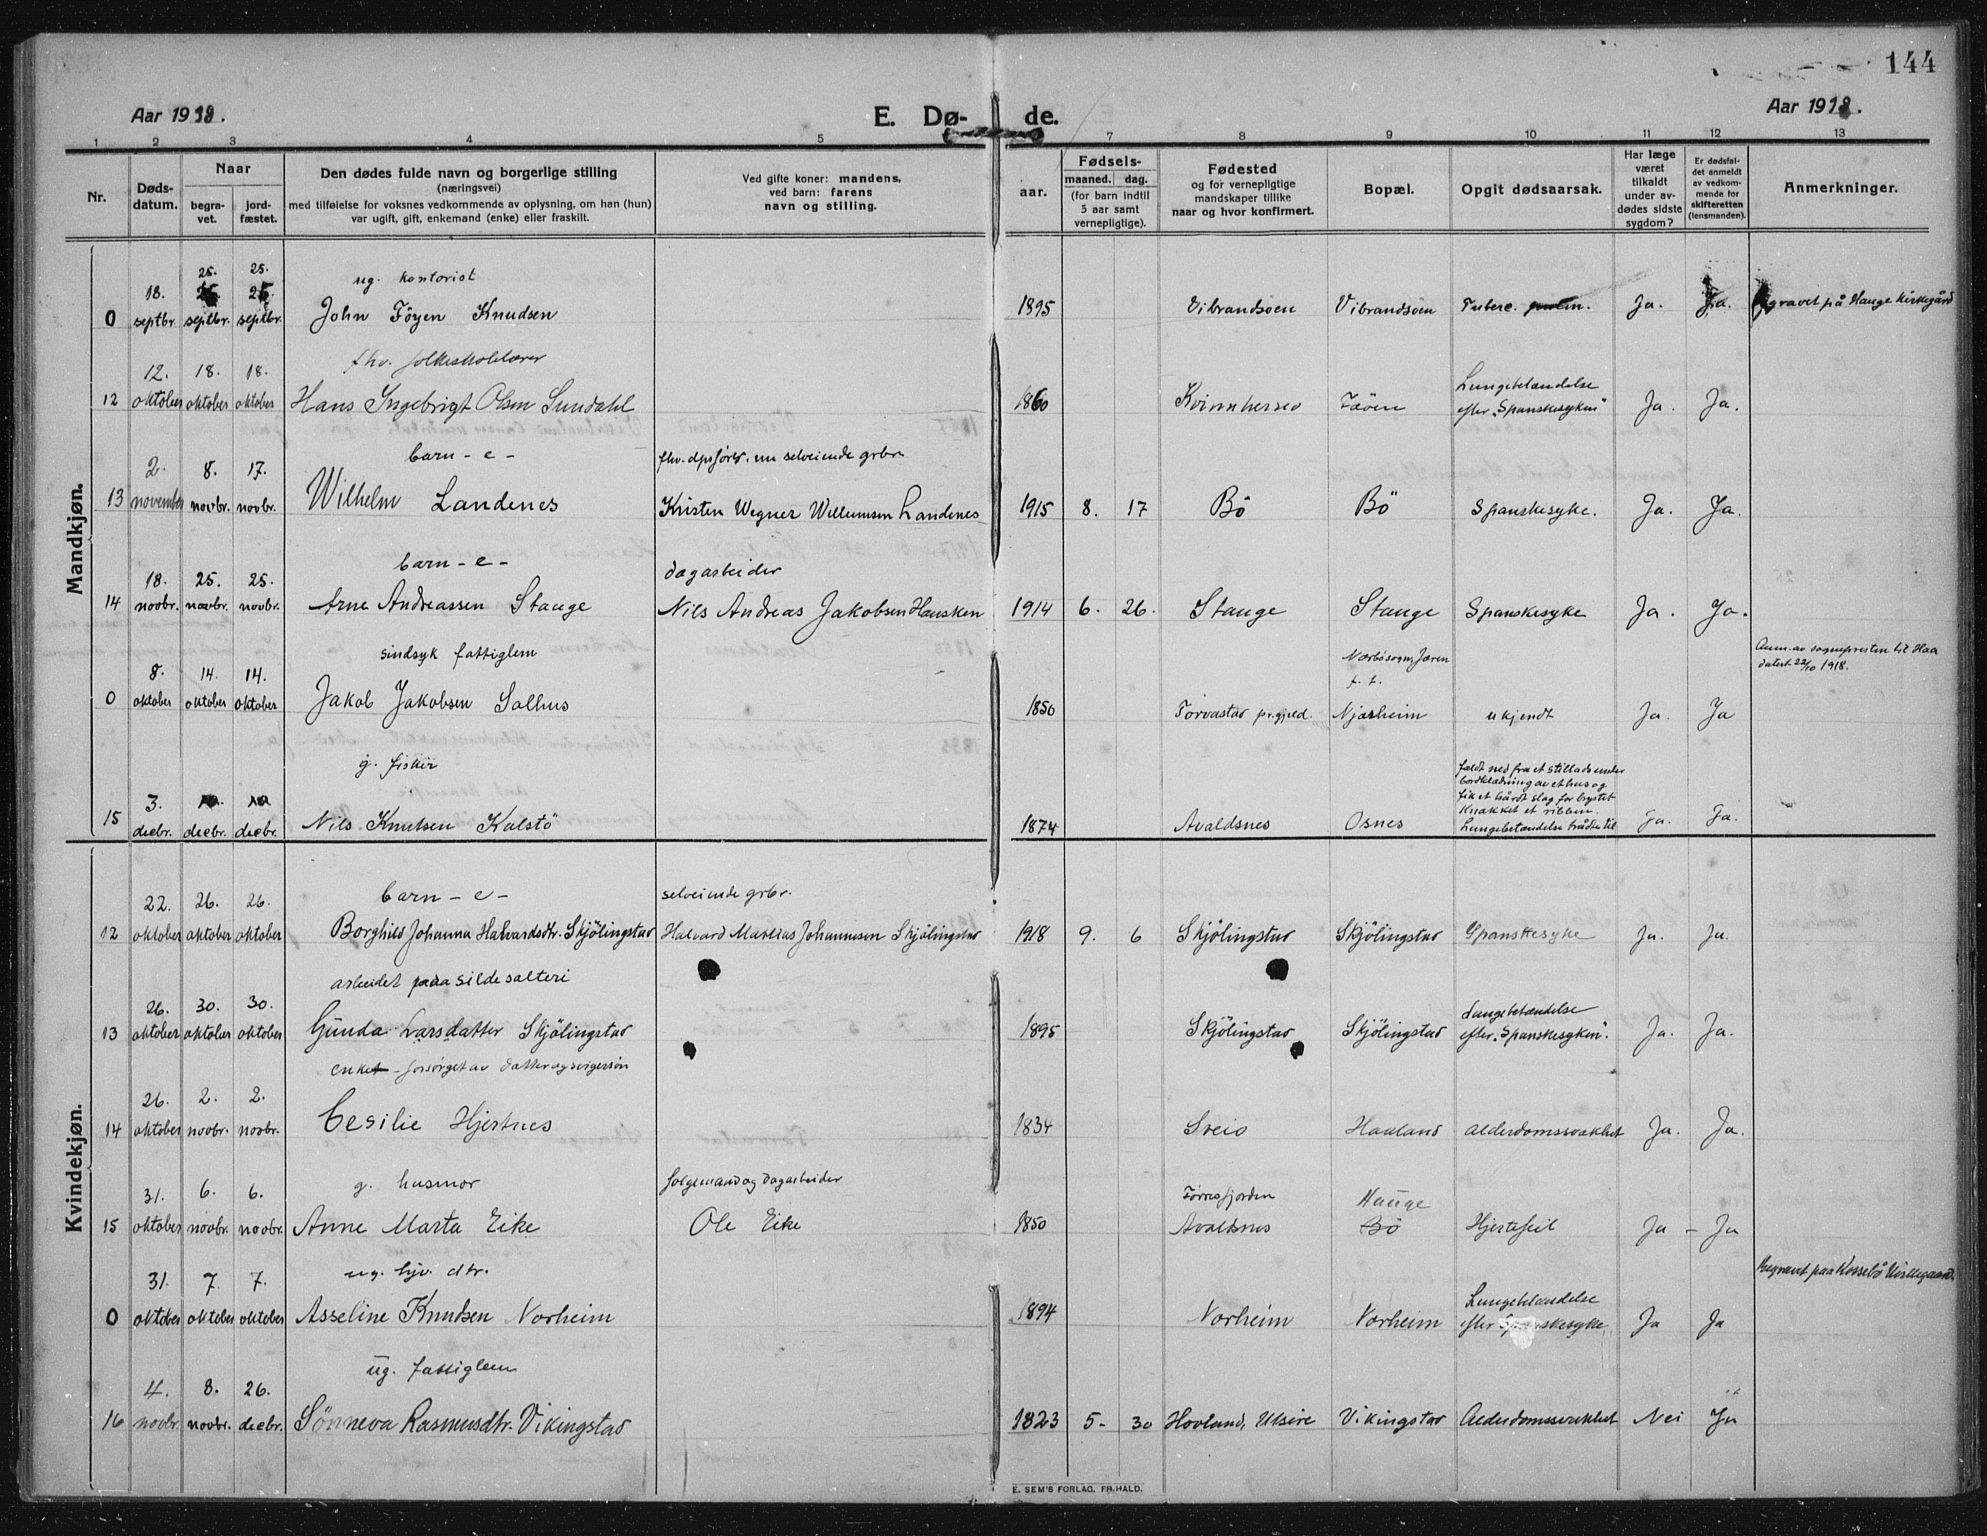 144
Aar 1918.
E. Dø-
de.
Aar 1918.
1 2 3 4 5 7 8 9 10 11 12 13
Nr.
Døds-
datum.
Naar
begra-
vet.
jord-
fæstet.
Den dødes fulde navn og borgerlige stilling
(næringsvei)
med tilføielse for voksnes vedkommende av oplysning, om han (hun)
var ugift, gift, enkemand (enke) eller fraskilt.
Ved gifte koner: mandens,
ved barn: farens
navn og stilling.
aar.
Fødsels-
maaned. dag.
(for barn indtil
5 aar samt
vernepligtige).
Fødested
og for vernepligtige
mandskaper tillike
naar og hvor konfirmert.
Bopæl.
Opgit dødsaarsak.
Har læge
været
tilkaldt
under av-
dødes sidste
sygdom?
Er dødsfal-
det anmeldt
av vedkom-
mende for
skifteretten
(lensmanden).
Anmerkninger.
Mandkjøn.
18. 25. 25. ug. kontorist
0 septbr. septbr. septbr. John Föyen Knudsen 1895 Vibrandsöen Vibrandsöen Tuberc. Ja. Ja. Begravet på Hauge kirkegård
12. 18. 18. fhv. folkeskolelærer Lungebetændelse
12 oktober oktober oktober Hans Ingebrigt Olsen Sundahl 1860 Kvinnherred Fööen efter "Spanskesyken" Ja. Ja.
2. 8. 17. barn - e - fhv. dpsförer, nu selveiende grbr.
13 november novbr. novbr. Wilhelm Landenes Kristen Wegner Willumsen Landenes 1915 8. 17 Bö Bö Spanskesyke. Ja. Ja.
18. 25. 25. barn - e - dagarbeider
14 novbr. novbr. novbr. Arne Andreassen Stange Nils Andreas Jakobsen Hausken 1914 6. 26. Stange Stange Spanskesyke Ja. Ja.
8. 14. 14. sindsyk fattiglem Nærbösogn, Jæren Anm. av sognepresten til Haa
datert 22/10 1918.
0 oktober oktober oktober Jakob Jakobsen Salhus 1850 Torvastad pr.gjeld. Njærheim ukjendt Ja. Ja
g. fisker faldt ned fra et stillads under
bordklædning av et hus og
fik et hårdt slag for brystet
Knækket et ribben.
3.
15 decbr. decbr. decbr. Nils Knutsen Kalstö 1874 Avaldsnes Osnes Lungebetændelse trådte til Ja. Ja.
Kvindekjøn.
22. 26. 26. barn - e - selveiende grbr.
12 oktober oktober oktober Borghild Johanna Halvardsdtr. Skjölingstad Halvard Mathias Johannesen Skjölingstad 1918 9. 6 Skjölingstad Skjölingstad Spanskesyke Ja. Ja.
26. 30. 30. arbeidet paa sildesalteri Lungebetændelse
13 oktober oktober oktober Gunda Larsdatter Skjölingstad 1895 Skjölingstad Skjölingstad efter "Spanskesyken". Ja. Ja.
26. 2. 2. enke - forsörget av datter og svigersön
14 oktober novbr. novbr. Cesilie Hjertnes 1834 Sveio Haaland Alderdomssvakhet Ja. Ja.
31. 6. 6. g. husmor folgemand og dagarbeider Förresfjorden Hauge
15 oktober novbr. novbr. Anne Marta Eike Ole Eike 1850 Avaldsnes Bö Hjertefeil Ja - Ja
31. 7. 7. ug. hjv. dtr. Lungebetændelse Begravet paa Kossebö Kirkegaard.
0 oktober oktober oktober Asseline Knudsen Norheim 1894 Norheim Norheim efter Spanskesyke Ja Ja
4. 8. 26. ug. fattiglem
16 novbr. novbr. decbr. Sönneva Rasmusdtr. Vikingstad 1823 5- 30 Hovland, Utsire Vikingstad Alderdomssvakhet Nei Ja
E. SEM'S FORLAG, FR.HALD.